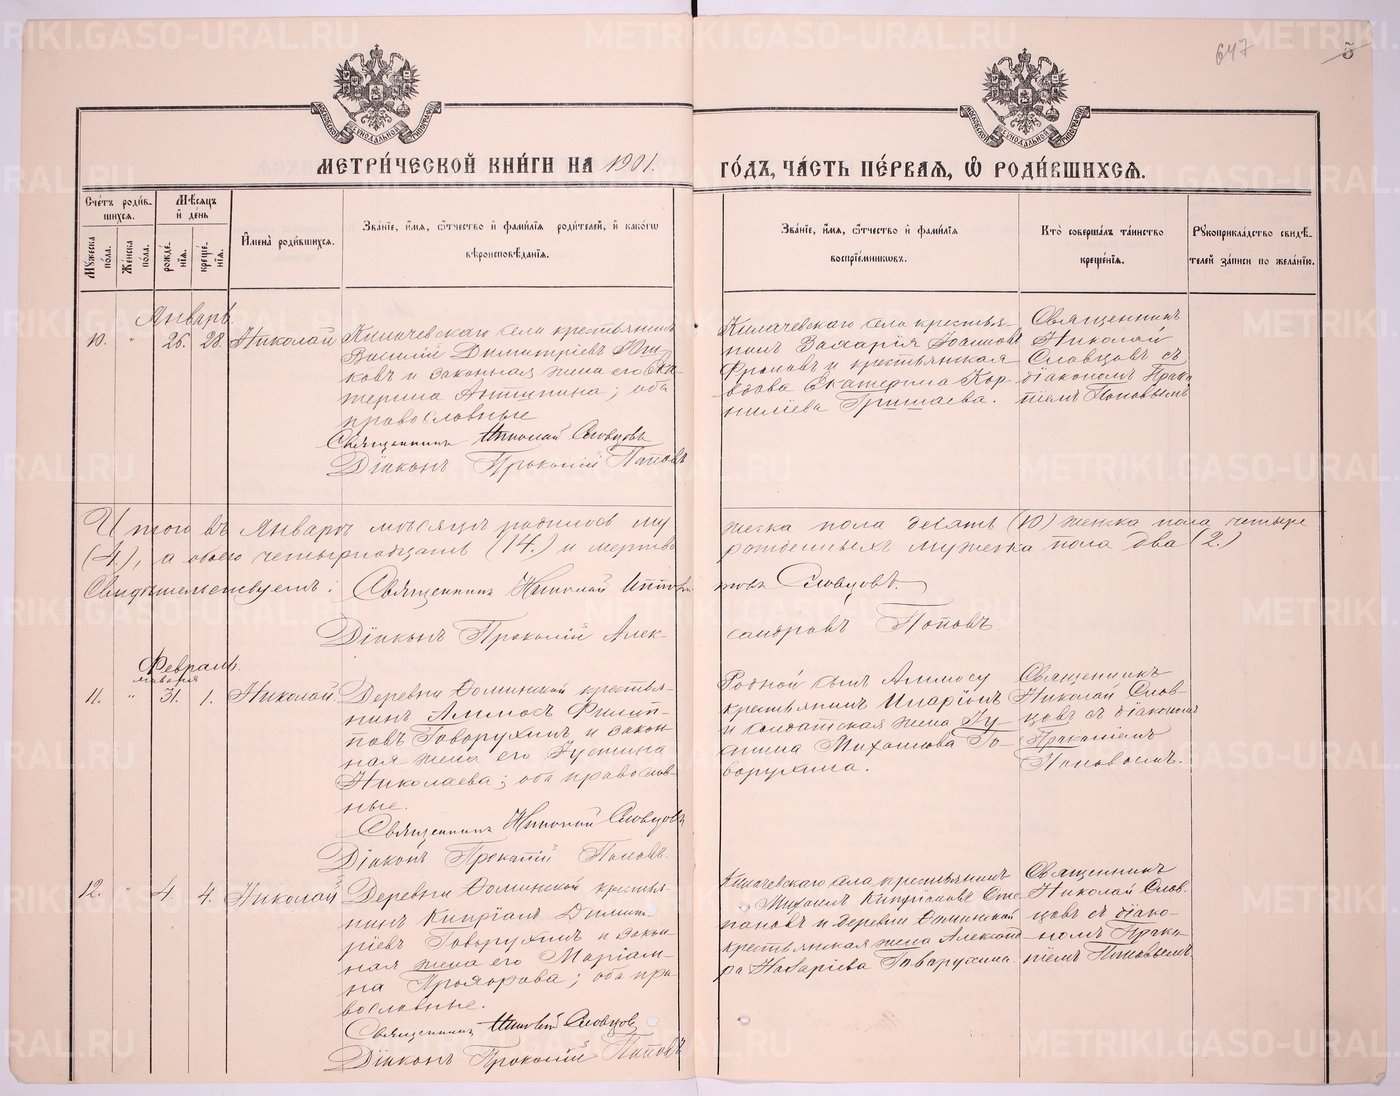 647
5
МЕТРИ́ЧЕСКОЙ КНИ́ГИ НА 1901.
ГО́ДЪ, ЧА́СТЬ ПЕ́РВАЯ, Ѡ҆ РОДИ́ВШИХСЯ.
Сче́тъ роди́в-
шихся.
Му́жеска по́ла.
Же́нска по́ла.
Мѣ́сяцъ
и҆ де́нь
рожде́нїя.
креще́нїя.
И҆мена̀ роди́вшихся.
Зва́нїе, и҆́мя, ѻ҆́тчество и҆ фами́лїя роди́телей, и҆ како́гѡ
вѣроисповѣ́данїя.
Зва́нїе, и҆́мя, ѻ҆́тчество и҆ фами́лїя
воспрїе́мниковъ.
Кто̀ соверша́лъ та́инство
креще́нїя.
Рꙋкоприкла́дство свидѣ́-
телей за́писи по жела́нїю.
Январь.
10. " 26. 28. Николай
Килачевскаго села крестьянинъ
Василій Димитріевъ Юш-
ковъ и законная жена его Ека-
терина Антипина; оба
православные
Священникъ Николай Словцовъ
Діаконъ Прокопій Поповъ
Килачевскаго села крестья-
нинъ Захарія Іоанновъ
Фроловъ и крестьянская
вдова Екатерина Кор-
нилієва Гришаева.
Священникъ
Николай
Словцовъ съ
діакономъ Проко-
піемъ Поповымъ
Итого въ Январѣ мѣсяцѣ родилось му
жеска пола десять (10) женска пола четыре
(4), а обоего четырнадцать (14.) и мертво
рожденныхъ мужеска пола два (2.)
Свидѣтельствуемъ: Священникъ Николай Ипполи
товъ Словцовъ.
Діаконъ Прокопій Алек-
сандровъ Поповъ.
Февраль.
января
11. " 31. 1. Николай
Деревни Фоминской крестья-
нинъ Аммосъ Филип-
повъ Говорухинъ и закон-
ная жена его Іустина
Николаева; оба православ-
ные.
Священникъ Николай Словцовъ
Діаконъ Прокопій Поповъ.
Родной сынъ Аммосу
крестьянинъ Иларіонъ
и солдатская жена
Михайлова Го-
ворухина.
Священникъ
Николай Слов-
цовъ съ діакономъ
Прокопіемъ
Поповымъ.
12. " 4. 4. Николай
Деревни Фоминской крестья-
нинъ Кипріанъ Димит-
ріевъ Говорухинъ и закон-
ная жена его Маріам-
на Прохорова; оба пра-
вославные.
Священникъ Николай Словцовъ
Діаконъ Прокопій Поповъ
Килачевскаго села крестьянинъ
Михаилъ Кипріановъ Сте-
пановъ и деревни Фоминской
крестьянская жена Александ-
ра Назаріева Говорухина.
Священникъ
Николай Слов-
цовъ съ діако-
номъ Проко-
піемъ Поповымъ.
METRIKI.GASO-URAL.RU